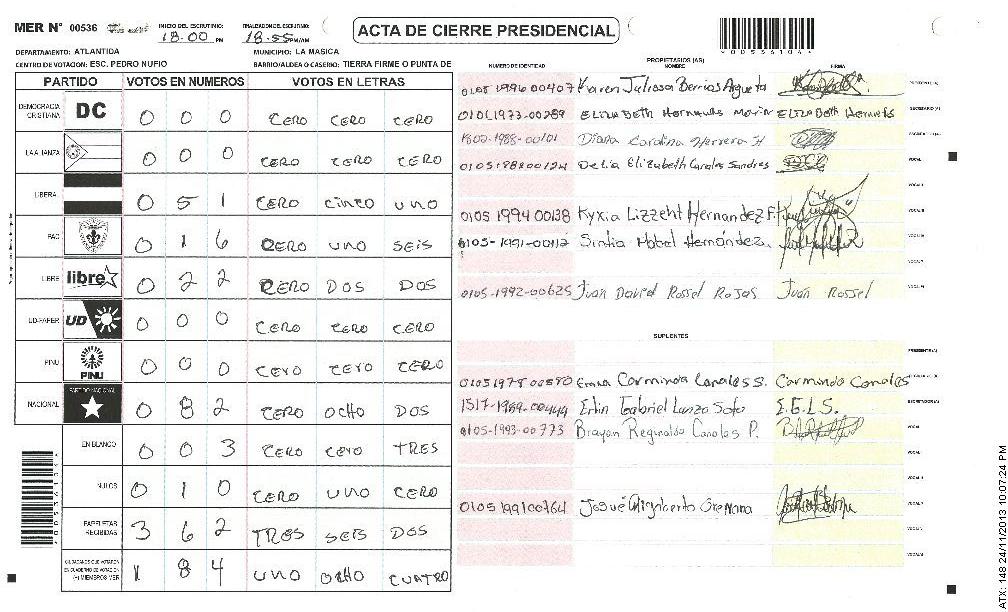 MER N° 00536
INICIO DEL ESCRUTINIO: 18:00 PM
FINALIZACION DEL ESCRUTINIO: 18:55 PM/AM
ACTA DE CIERRE PRESIDENCIAL
00536104
DEPARTAMENTO: ATLANTIDA
MUNICIPIO: LA MASICA
CENTRO DE VOTACION: ESC. PEDRO NUFIO
BARRIO/ALDEA O CASERIO: TIERRA FIRME O PUNTA DE
PARTIDO VOTOS EN NUMEROS VOTOS EN LETRAS
DEMOCRACIA CRISTIANA DC 0 0 0 CERO CERO CERO
LA ALIANZA 0 0 0 CERO CERO CERO
LIBERAL 0 5 1 CERO CINCO UNO
PAC 0 1 6 CERO UNO SEIS
LIBRE libre 0 2 2 CERO DOS DOS
UD-FAPER UD 0 0 0 CERO CERO CERO
PINU PINU 0 0 0 CERO CERO CERO
NACIONAL PARTIDO NACIONAL 0 8 2 CERO OCHO DOS
EN BLANCO 0 0 3 CERO CERO TRES
NULOS 0 1 0 CERO UNO CERO
PAPELETAS RECIBIDAS 3 6 2 TRES SEIS DOS
CIUDADANOS QUE VOTARON EN CUADERNO DE VOTACION (+) MIEMBROS MER 1 8 4 UNO OCHO CUATRO
PROPIETARIOS (AS)
NUMERO DE IDENTIDAD NOMBRE FIRMA
0105 1996 00407 Karen Julissa Berrios Argueta PRESIDENTE (A)
0101 1973-00289 Elizabeth Hernandez ELIZABETH SECRETARIO (A)
1800-1988-00101 Diana Carolina Herrera H
0105 1988 00124 Delia Elizabeth Canales VOCAL I
0105 1994 00138 Kyxia Lizzeht Hernandez F.
0105-1991-00112 Sintia Mabel Hernández
0105-1992-00625 Juan David Rossel Rojas Juan Rossel
SUPLENTES
PRESIDENTE (A)
0105 1978 00590 Carminda Canales S. Carminda Canales
1517-1969-00449 Erlin Gabriel Lanza Soto E.G.L.S. SECRETARIO (A)
0105-1993-00773 Brayan Reginaldo Canales P.
0105 1991 00764 Josué Orellana
ATX: 148 24/11/2013 10:07:24 PM